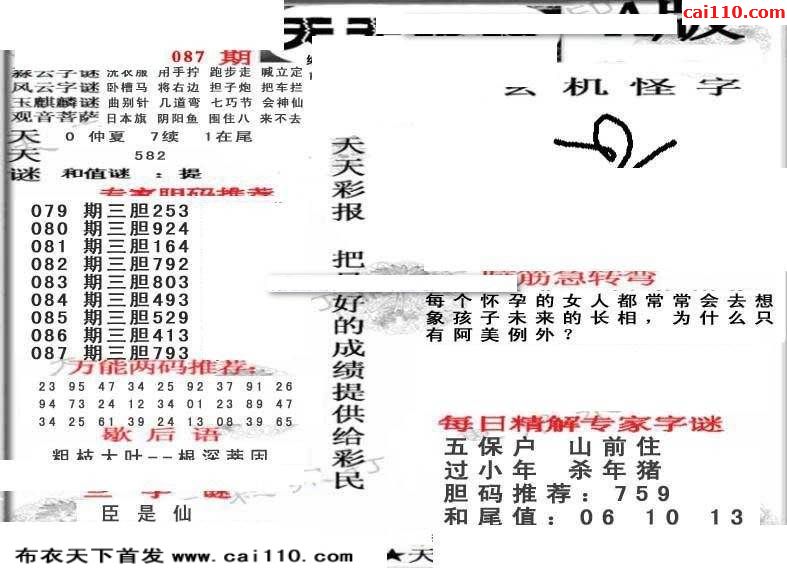 cai110.com
087 期
云字谜 洗衣服 用手拧 跑步走 喊立定
风云字谜 卧槽马 将右边 担子炮 把车拦
玉麒麟谜 曲别针 几道弯 七巧节 会神仙
观音菩萨 日本旗 阴阳鱼 围住八 来不去
天 0 仲夏 7续 1在尾
天 582
谜 和值谜 : 提
专家胆码推荐
079 期三胆253
080 期三胆924
081 期三胆164
082 期三胆792
083 期三胆803
084 期三胆493
085 期三胆529
086 期三胆413
087 期三胆793
万能两码推荐:
23 95 47 34 25 92 37 91 26
94 73 24 12 34 01 23 89 47
34 25 61 39 24 13 08 39 65
歇后语
粗枝大叶--根深蒂固
三字谜
臣是仙
天天彩报 把 好的成绩提供给彩民
云机怪字
脑筋急转弯
每个怀孕的女人都常常会去想
象孩子未来的长相，为什么只
有阿美例外？
每日精解专家字谜
五保户 山前住
过小年 杀年猪
胆码推荐: 759
和尾值: 06 10 13
布衣天下首发 www.cai110.com
★天